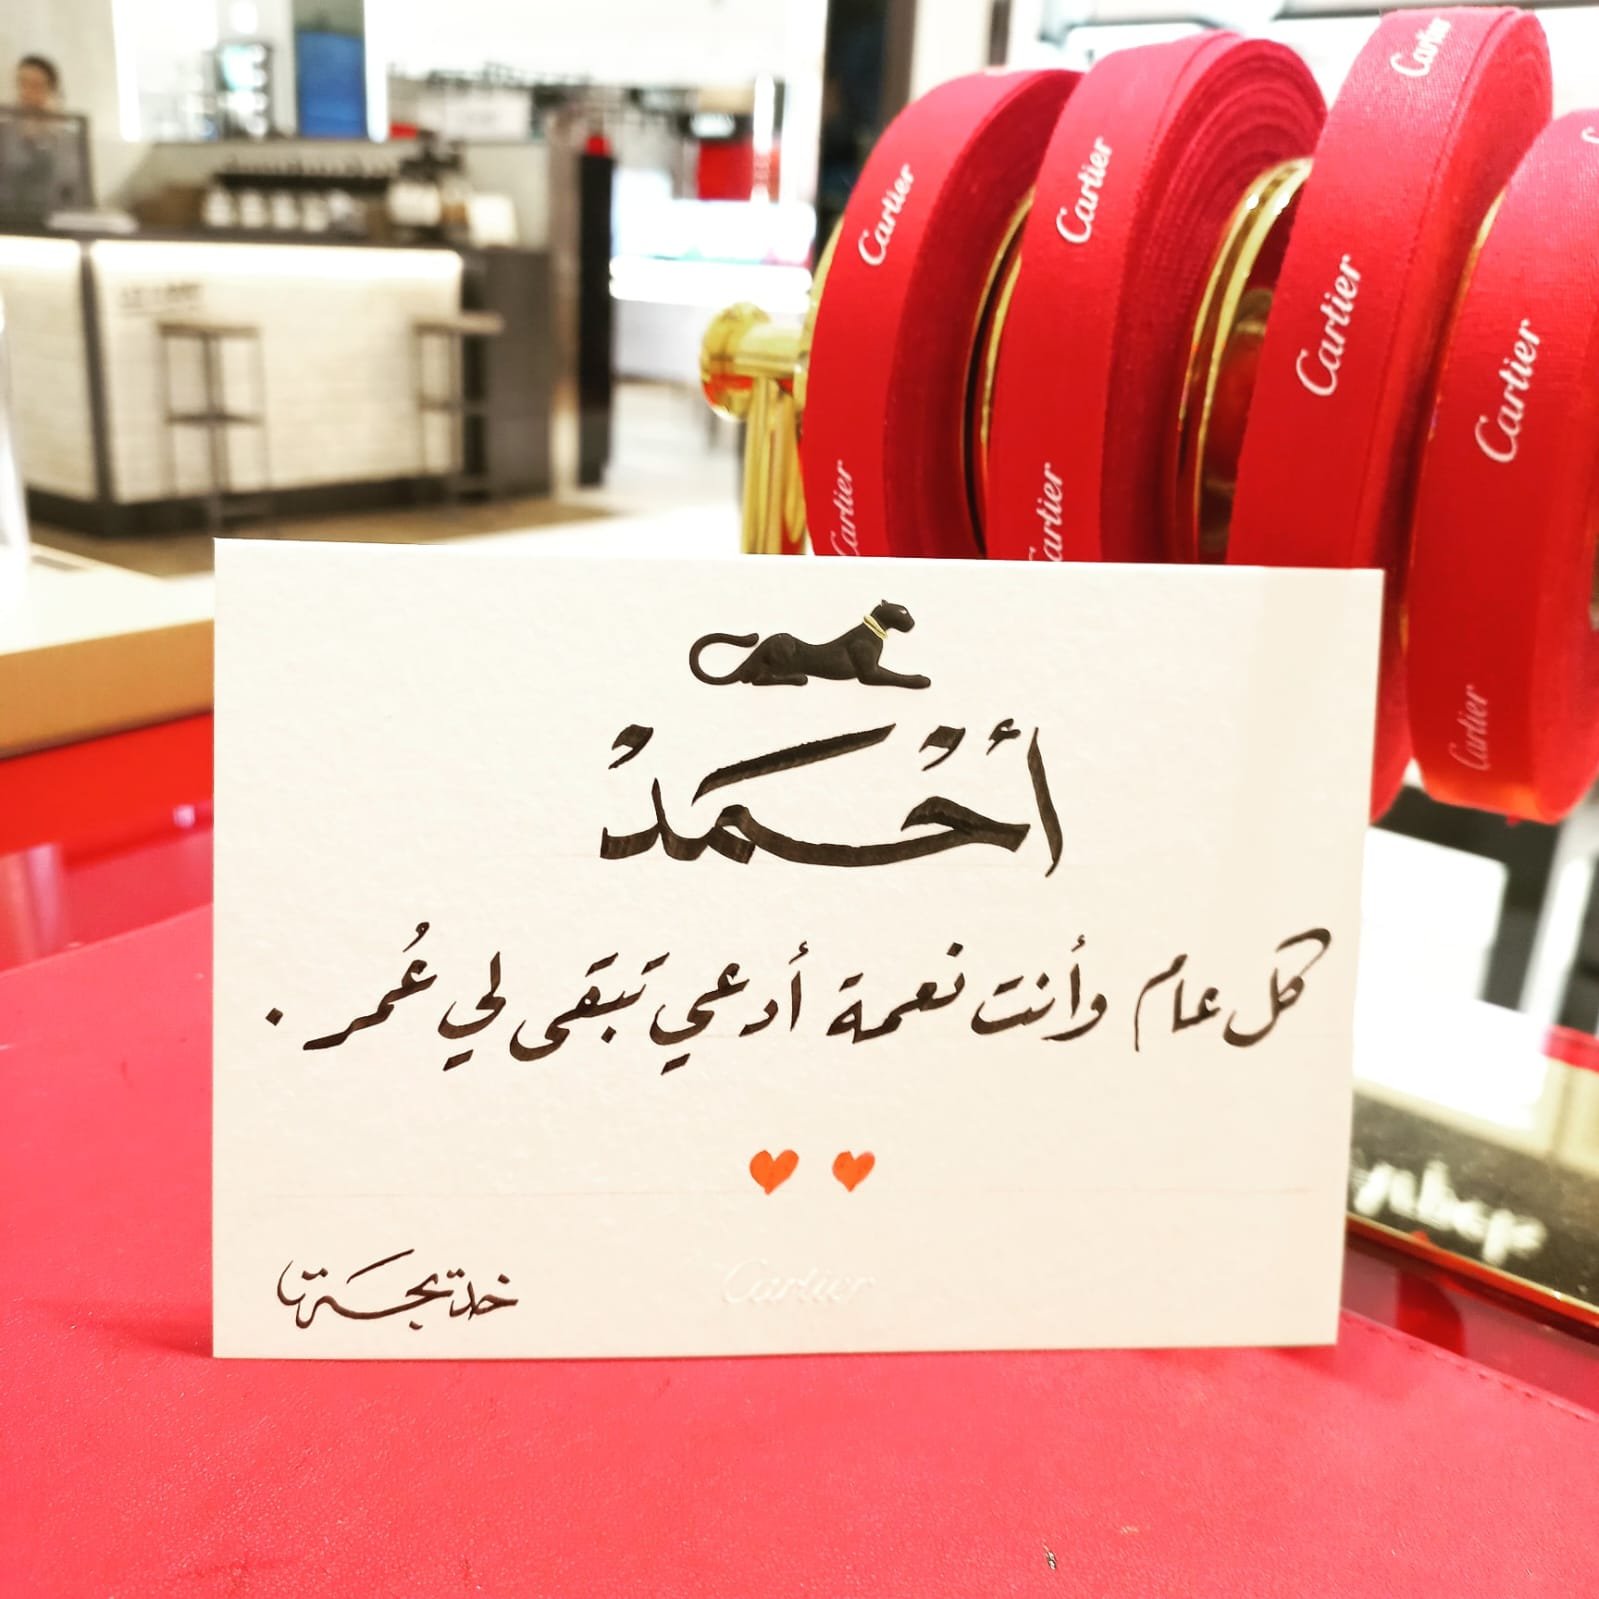 Cartier
Cartier
Cartier
Cartier
Cartier
Cartier
أحْمَدْ
كل عام وأنت نعمة أدعي تبقى لي عُمر .
خديجة
Cartier